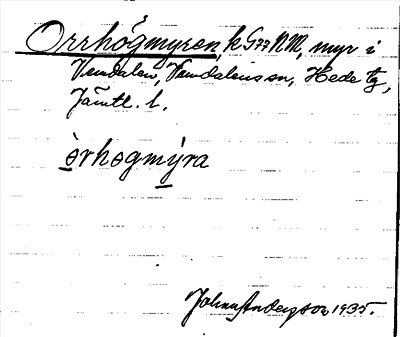 Orrhögmyren, k G77 NM, myr i
Vemdalen, Vemdalens sn, Hede tg,
Jämtl. l.
òrhøgmýra
Johan Anderson 1935.